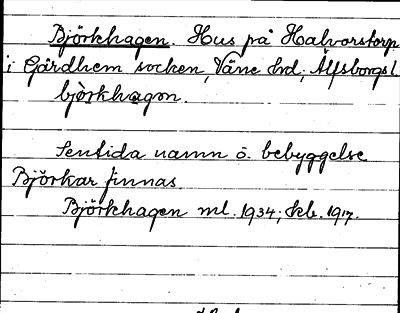 Björkhagen. Hus på Halvorstorp
i Gärdhem socken, Väne hrd; Älfsborgs l.
björkhagen.
Sentida namn o. bebyggelse
Björkar finnas.
Björkhagen ml. 1934; kb. 1917.